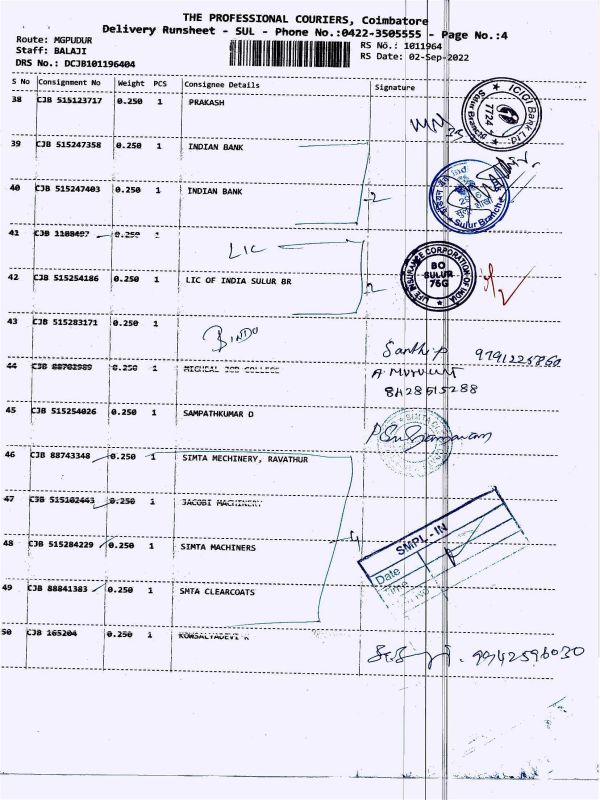 THE PROFESSIONAL COURIERS, Coimbatore
Delivery Runsheet - SUL - Phone No.:0422-3505555 - Page No.:4
Route: MGPUDUR
Staff: BALAJI
DRS No.: DCJB101196404
RS No.: 1011964
RS Date: 02-Sep-2022
S No Consignment No Weight PCS Consignee Details Signature
38 CJB 515123717 0.250 1 PRAKASH
ICICI Bank Ltd
7724
39 CJB 515247358 0.250 1 INDIAN BANK
40 CJB 515247403 0.250 1 INDIAN BANK
2
Sulur Branch
41 CJB 1108497 0.250 1 LIC
42 CJB 515254186 0.250 1 LIC OF INDIA SULUR BR
2
LIFE INSURANCE CORPORATION OF INDIA
BO
SULUR
76G
43 CJB 515283171 0.250 1 BINDU
Santhip 9791225860
44 CJB 88702989 0.250 1 MICHEAL JOB COLLEGE
A. Murugunt
8428515288
45 CJB 515254026 0.250 1 SAMPATHKUMAR D
46 CJB 88743348 0.250 1 SIMTA MECHINERY, RAVATHUR
47 CJB 515102443 0.250 1 JACOBI MACHINERY
48 CJB 515284229 0.250 1 SIMTA MACHINERS
4
SMPL-IN
Date
Time
49 CJB 88841383 0.250 1 SMTA CLEARCOATS
50 CJB 165204 0.250 1 KOWSALYADEVI K
9942596030